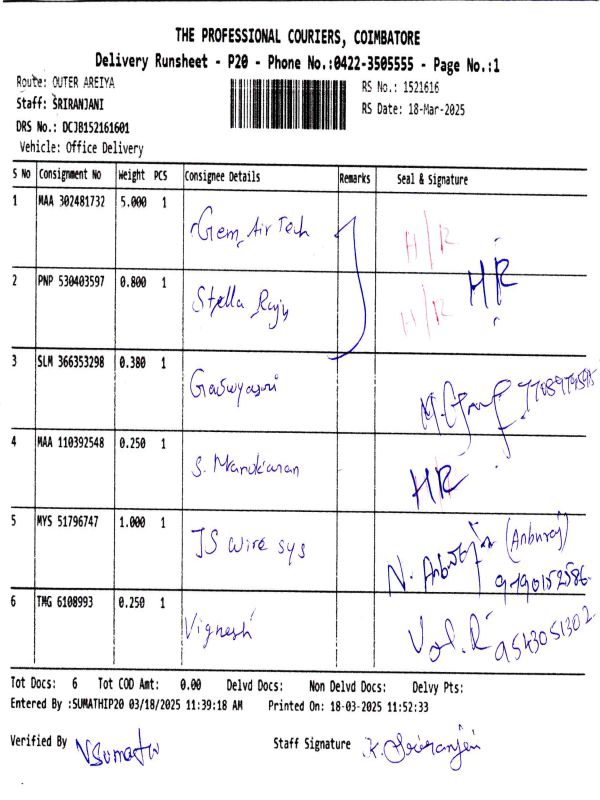 THE PROFESSIONAL COURIERS, COIMBATORE
Delivery Runsheet - P20 - Phone No.:0422-3505555 - Page No.:1
Route: OUTER AREIYA
RS No.: 1521616
Staff: SRIRANJANI
RS Date: 18-Mar-2025
DRS No.: DCJB152161601
Vehicle: Office Delivery
S No Consignment No Weight PCS Consignee Details Remarks Seal & Signature
1 MAA 302481732 5.000 1 Gem Air Tech H/R
2 PNP 530403597 0.800 1 Stella Raju H/R HR
3 SLM 366353298 0.380 1
4 MAA 110392548 0.250 1 S. HR
5 MYS 51796747 1.000 1 JS wire sys N. Anburaj (Anburaj)
9790152586
6 TMG 6108993 0.250 1 Vignesh 9543051302
Tot Docs: 6 Tot COD Amt: 0.00 Delvd Docs: Non Delvd Docs: Delvy Pts:
Entered By :SUMATHIP20 03/18/2025 11:39:18 AM Printed On: 18-03-2025 11:52:33
Verified By Staff Signature